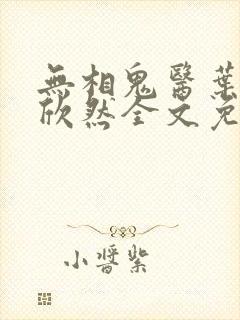 無相鬼醫葉
欣然全文免
小醬紫